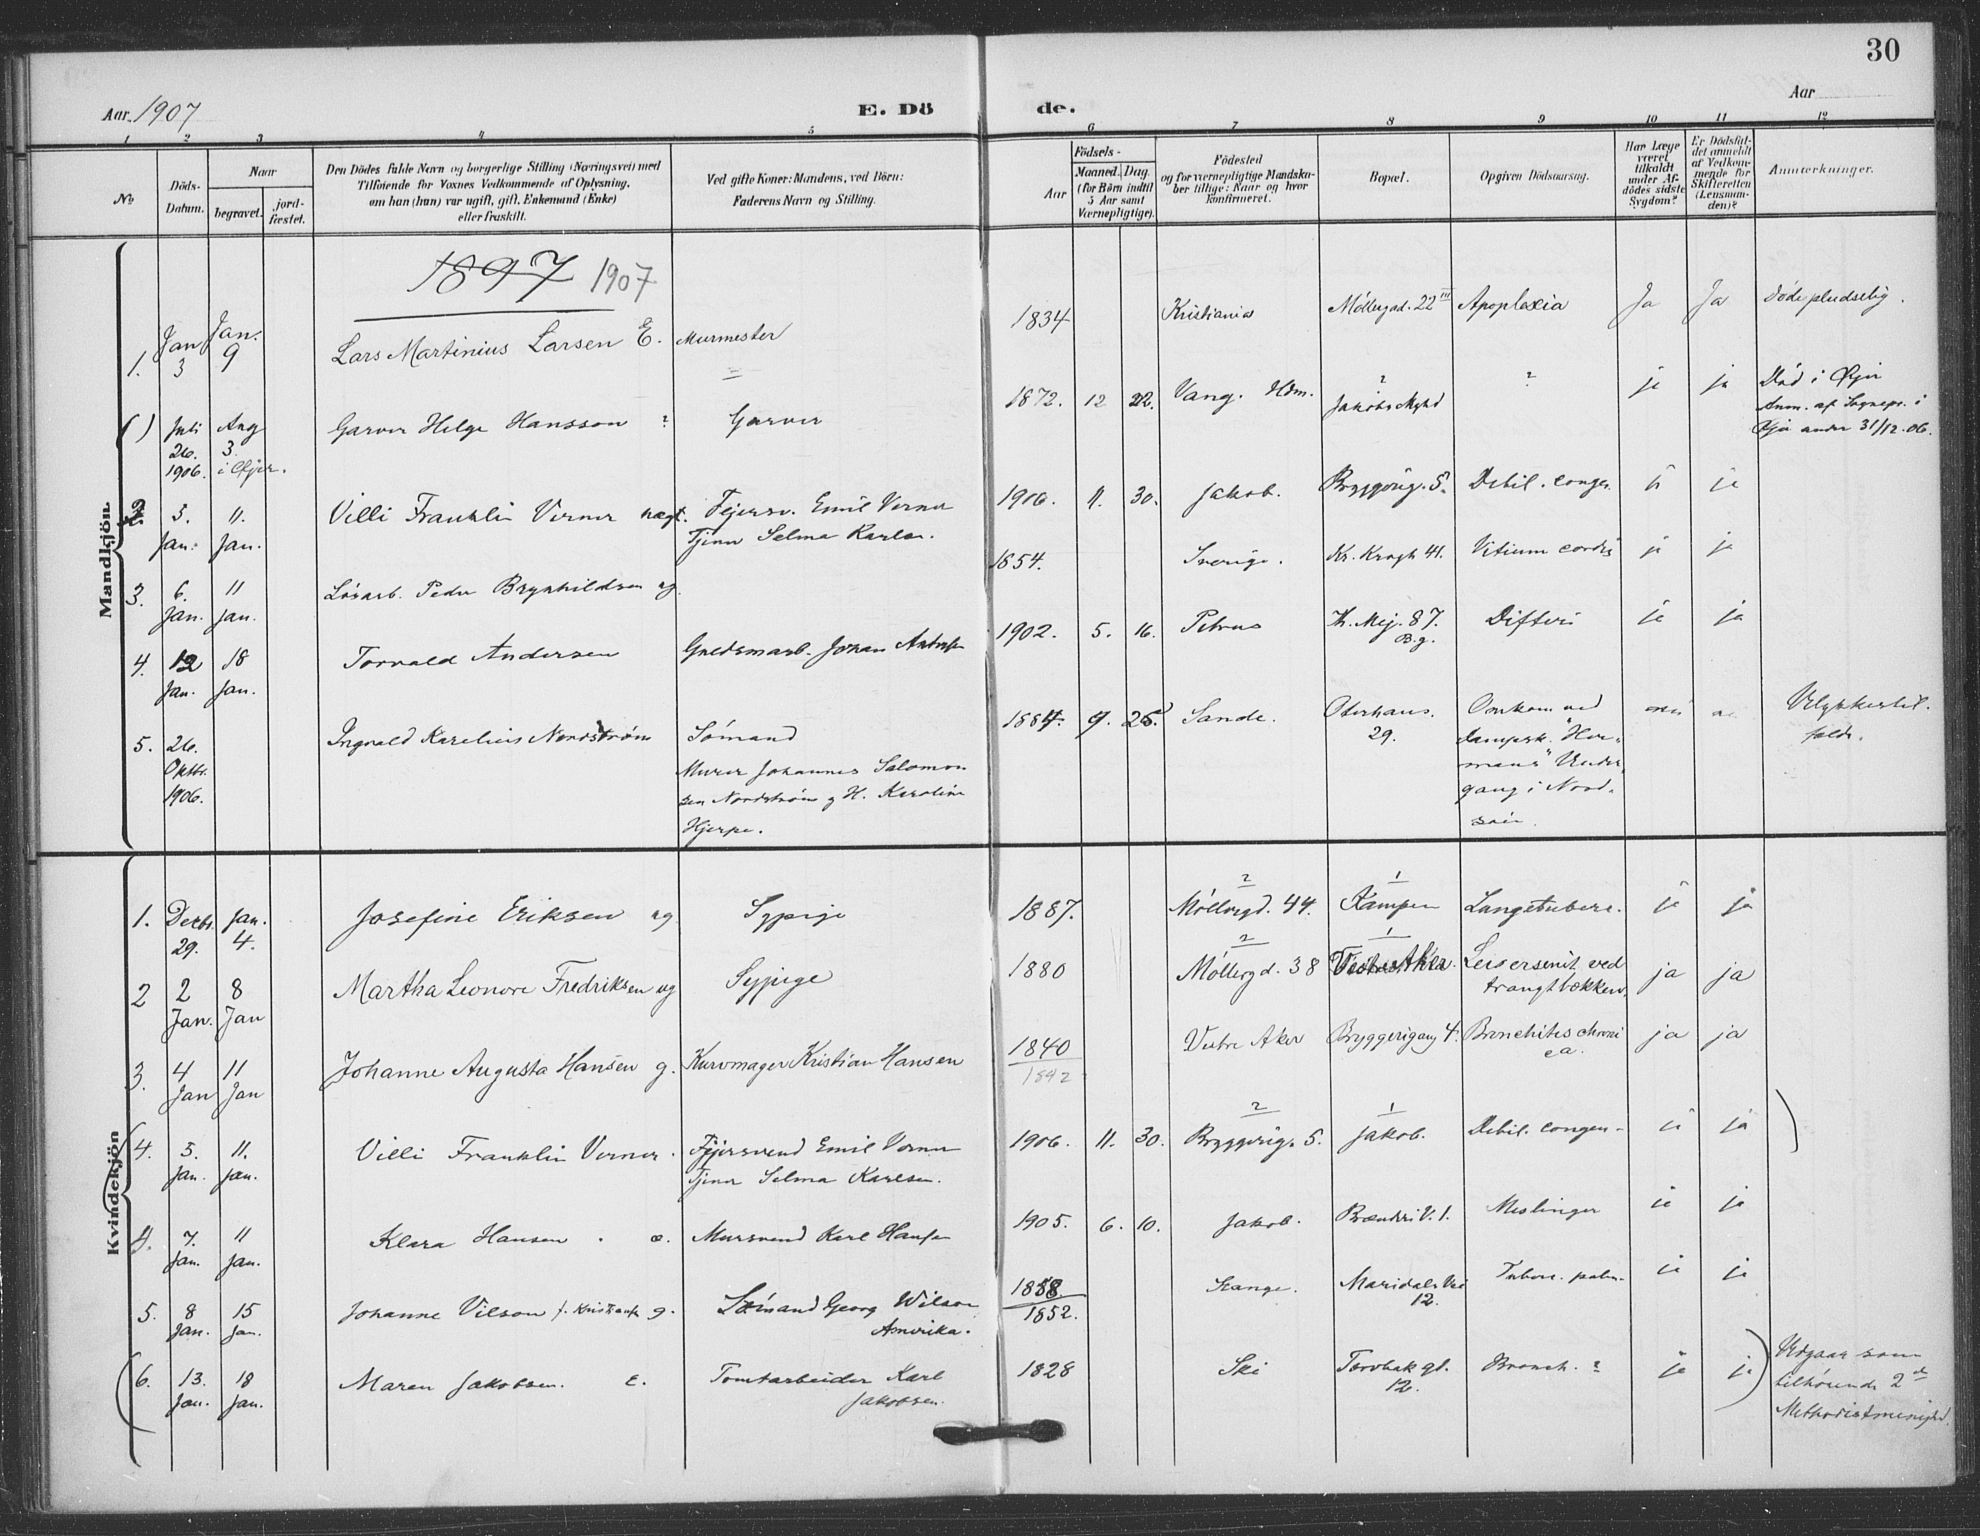 30
Aar. 1907
E. Dö de.
Aar
1 2 3 4 5 6 7 8 9 10 11 12
No
Döds-Datum.
Naar
begravet.
jord-fæstet.
Den Dödes fulde Navn og borgerlige Stilling (Næringsvei) med
Tilföiende for Voxnes Vedkommende af Oplysning,
om han (hun) var ugift, gift, Enkemand (Enke)
eller fraskilt.
Ved gifte Koner: Mandens, ved Börn:
Faderens Navn og Stilling.
Födsels-
Aar
Maaned. Dag.
(for Börn indtil
5 Aar samt
Værnepligtige).
Födested
og for værnepligtige Mandska-
ber tillige: Naar og hvor
konfirmeret.
Bopæl.
Opgiven Dödsaarsag.
Har Læge
været
tilkaldt
under Af-
dödes sidste
Sygdom?
Er Dödsfal-
det anmeldt
af Vedkom-
mende for
Skifteretten
(Lensman-
den)?
Anmerkninger.
Mandkjön.
1897 1907
1. Jan 3 Jan. 9 Lars Martinius Larsen E. Murmester 1834 Kristiania Möllergad. 22 III Apoplexia Ja Ja Döde pludselig.
( ) Juli 26. 1906. Aug 3. i Øjer. Garver Helge Hansson ? Garver 1872. 12 22. Vang. Hdm. ? Jakobs ? ja ja Död i Øjer
Anm. af Sognepr. i
Øjer under 31/12.06.
2. 5. Jan. 11. Jan. Villi Franklin Verner uægt. Fejersv. Emil Verner
Tjener Selma Karlsen. 1906. 11. 30. Jakob. Bryggerig. 5. Debil. congen. ja ja
3. 6. Jan. 11 Jan. Lösarb. Peder Brynhildsen ug. 1854. Sverige. Kr. Krogh 41. Vitium cordis ja ja
4. 12 Jan. 18 Jan. Torvald Andersen Guldsmarb. Johan Andersen 1902. 5. 16. Petrus Th. Mej. 87. B.g. Difteri ja ja
5. 26. Oktbr. 1906. Ingvald Karelius Nordström Sömand
Murer Johannes Salomon
sen Nordström og H. Karoline
Hjerpe. 1884. 9. 25. Sande. Oterhaus. 29. Omkom ved
dampsk. "Her-
mans" Under-
gang i Nord-
søen. Ulykkestil-
fælde.
Kvindekjön
1. Decbr. 29. Jan. 4. Josefine Eriksen ug. Sypige 1887. 2 Möllergd. 44. 1 Kampen Lungetuberc. ja ja
2 2 Jan. 8 Jan Martha Leonore Fredriksen ug Sypige 1880 2 Möllergd. 38 1 Vestre Aker. ved
trangt bækken. ja ja
3. 4 Jan 11 Jan Johanne Augusta Hansen g. Kurvmager Kristian Hansen 1840 1842 Vestre Aker Bryggerigang 4. Bronchitis chroni
ca. ja ja
(4. 5. Jan. 11. Jan. Villi Franklin Verner. Fejersvend Emil Verner
Tjener Selma Karlsen. 1906. 11. 30. 2 Bryggerig. 5. 1 Jakob. Debil. congen- ja ja )
4. 7. Jan. 11 Jan. Klara Hansen . æ. Mursvend Karl Hansen 1905. 6. 10. Jakob. Brænderi V. 1. Meslinger ja ja
5. 8 Jan. 15 Jan. Johanne Vilson f. Kristians g. Sömand Georg Wilson
Amerika. 1858 1852. Stange. Maridalsvei 12. Tuberc. pulm. ja ja
(6. 13. Jan. 18 Jan. Maren Jakobsen. E. Tomtarbeider Karl
Jakobsen. 1828 Ski Torvbakgt. 12. Bronch. ? ja ja) Udgaar som
tilhörende 2den
Methodistmenighed.